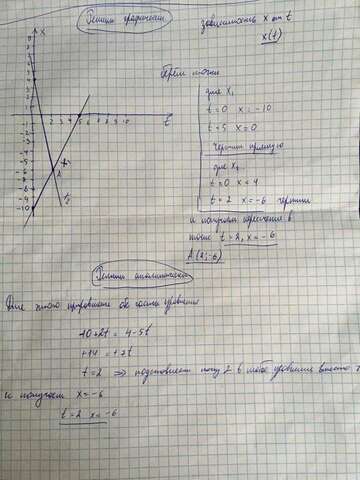 Решим графически
зависимость x от t
x(t)
Берём точки
для x₁
t=0 x=-10
t=5 x=0
Чертим прямую
для x₂
t=0 x=4
t=2 x=-6 чертим
и получаем пересечение в
точке t=2, x=-6
A(2;-6)
x
t
1 2 3 4 5 6 7 8 9 10
A
Решим аналитически
Для этого приравниваем обе части уравнения
-10+2t = 4-5t
+14 = +7t
t=2 => подставляем 2 в любое уравнение вместо t
и получаем x=-6
t=2 x=-6